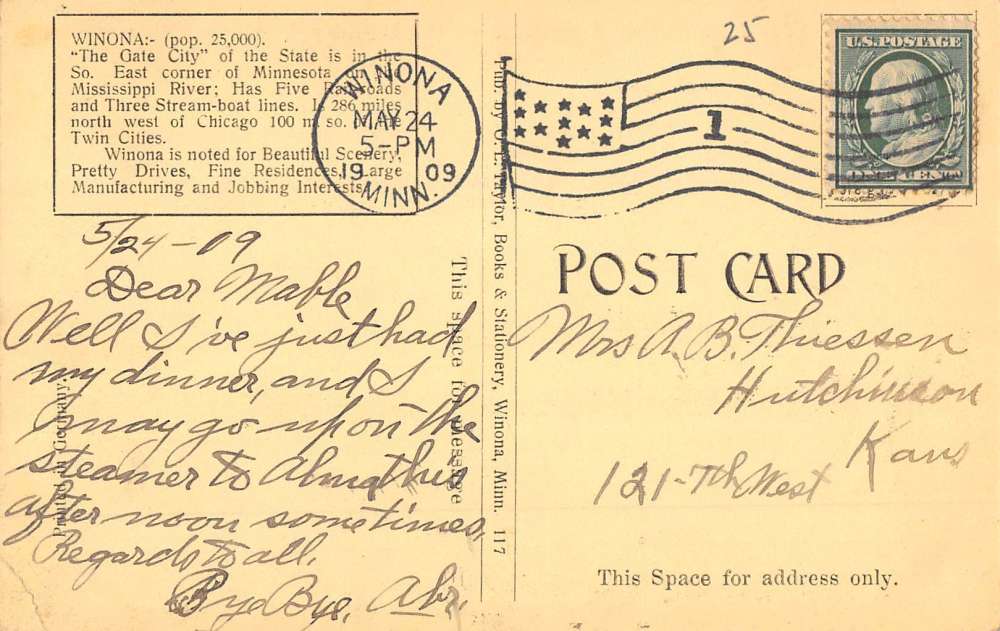 WINONA:- (pop. 25,000).
"The Gate City" of the State is in the
So. East corner of Minnesota on the
Mississippi River; Has Five Railroads
and Three Stream-boat lines. Is 286 miles
north west of Chicago 100 m. so. of the
Twin Cities.
Winona is noted for Beautiful Scenery,
Pretty Drives, Fine Residences, Large
Manufacturing and Jobbing Interests.
WINONA
MAY 24
5-PM
19 09
MINN.
1
25
U.S. POSTAGE
5/24-09
Dear Mable
Well I've just had
my dinner, and I
may go up on the
steamer to Alma this
after noon sometimes.
Regards to all.
Bye Bye, Abr.
This space for Message
Printed in Germany
Pub. by O. L. Taylor, Books & Stationery, Winona, Minn. 117
POST CARD
Mrs A. B. Thiessen
Hutchinson
Kans
121-7th West
This Space for address only.